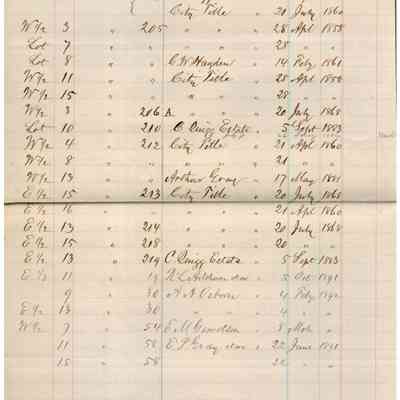 City Title " 21 July 1860
W½ 3 " 205 " " " 28 Apl 1858
Lot 7 " " " " 28 " "
Lot 8 " C W Hayden " 14 Feby 1861
W½ 11 " City Title " 28 Apl 1858
W½ 15 " " " " 28 " "
W½ 3 " 206 A " " 20 July 1868
Lot 10 " 210 C Quigg Estate " 5 Sept 1883
W½ 4 " 212 City Title " 21 Apl 1860
W½ 8 " " " " 21 " "
W½ 13 " Arthur Gray " 17 May 1881
E½ 15 " 213 City Title " 20 July 1868
E½ 16 " " " " 21 Apl 1860
E½ 13 " 214 " " " 20 July 1868
E½ 15 " 218 " " " 20 " "
E½ 13 " 219 C Quigg Estate " 5 Sept 1883
E½ 11 " 19 " 5 Oct 1891
9 " 30 A A Osborn " 4 Feby 1892
E½ 13 " 30 " " " 4 " "
W½ 7 " 54 E M " 8 Mch "
11 " 58 E P Gray " 22 June 1891
15 " 58 " 22 " "